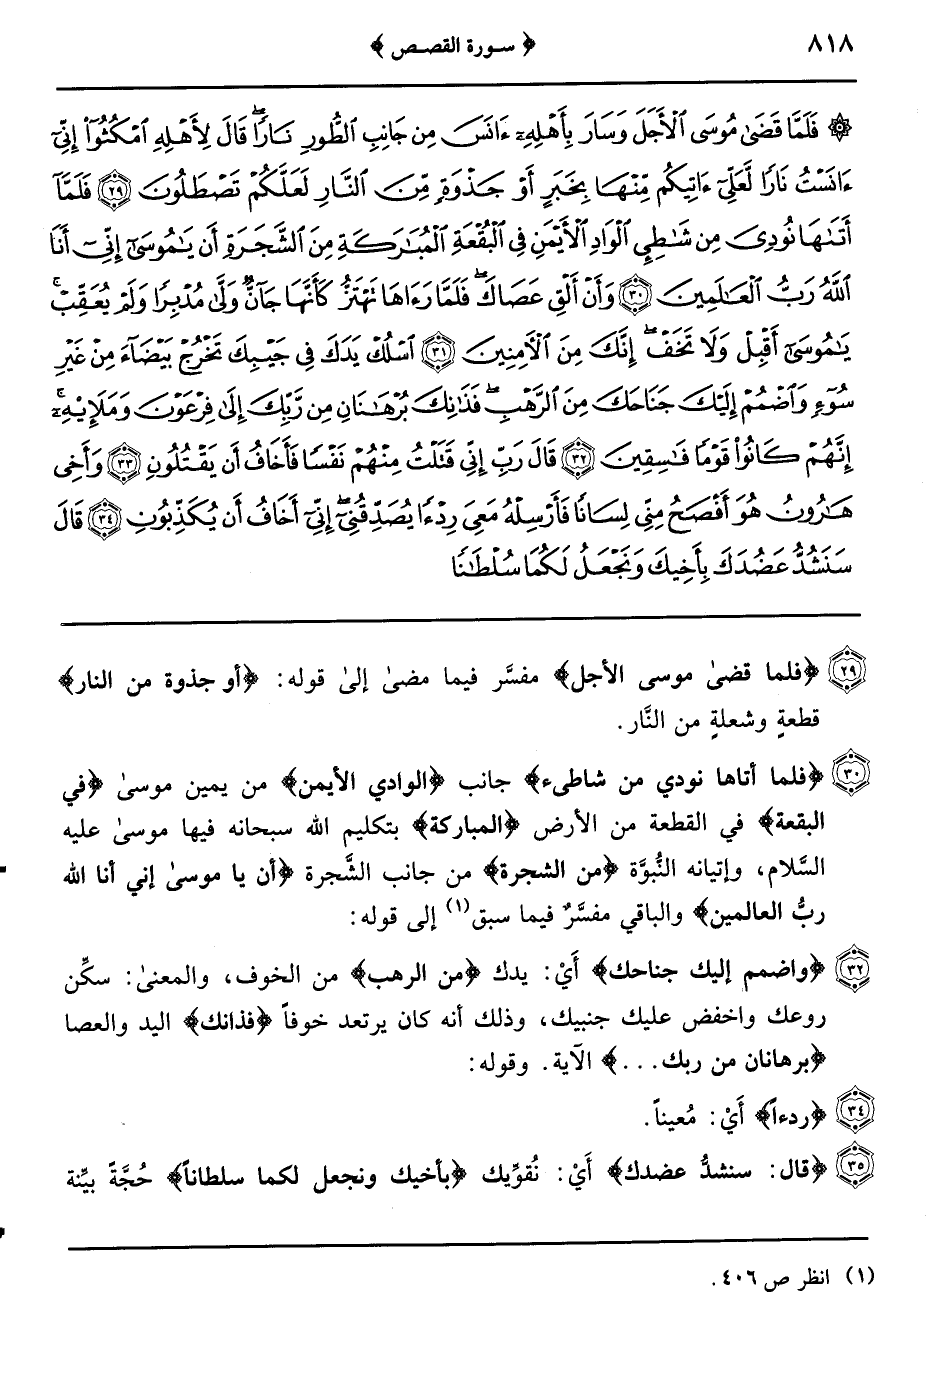 ٨١٨ ﴿ سورة القصص ﴾
۞ فَلَمَّا قَضَىٰ مُوسَى ٱلْأَجَلَ وَسَارَ بِأَهْلِهِۦٓ ءَانَسَ مِن جَانِبِ ٱلطُّورِ نَارًۭا ۖ قَالَ لِأَهْلِهِ ٱمْكُثُوٓا۟ إِنِّىٓ
ءَانَسْتُ نَارًۭا لَّعَلِّىٓ ءَاتِيكُم مِّنْهَا بِخَبَرٍ أَوْ جَذْوَةٍۢ مِّنَ ٱلنَّارِ لَعَلَّكُمْ تَصْطَلُونَ ٢٩ فَلَمَّآ
أَتَىٰهَا نُودِىَ مِن شَٰطِئِ ٱلْوَادِ ٱلْأَيْمَنِ فِى ٱلْبُقْعَةِ ٱلْمُبَٰرَكَةِ مِنَ ٱلشَّجَرَةِ أَن يَٰمُوسَىٰٓ إِنِّىٓ أَنَا
ٱللَّهُ رَبُّ ٱلْعَٰلَمِينَ ٣٠ وَأَنْ أَلْقِ عَصَاكَ ۖ فَلَمَّا رَءَاهَا تَهْتَزُّ كَأَنَّهَا جَآنٌّۭ وَلَّىٰ مُدْبِرًۭا وَلَمْ يُعَقِّبْ ۚ
يَٰمُوسَىٰٓ أَقْبِلْ وَلَا تَخَفْ ۖ إِنَّكَ مِنَ ٱلْءَامِنِينَ ٣١ ٱسْلُكْ يَدَكَ فِى جَيْبِكَ تَخْرُجْ بَيْضَآءَ مِنْ غَيْرِ
سُوٓءٍۢ وَٱضْمُمْ إِلَيْكَ جَنَاحَكَ مِنَ ٱلرَّهْبِ ۖ فَذَٰنِكَ بُرْهَٰنَانِ مِن رَّبِّكَ إِلَىٰ فِرْعَوْنَ وَمَلَإِي۟هِۦٓ ۚ
إِنَّهُمْ كَانُوا۟ قَوْمًۭا فَٰسِقِينَ ٣٢ قَالَ رَبِّ إِنِّى قَتَلْتُ مِنْهُمْ نَفْسًۭا فَأَخَافُ أَن يَقْتُلُونِ ٣٣ وَأَخِى
هَٰرُونُ هُوَ أَفْصَحُ مِنِّى لِسَانًۭا فَأَرْسِلْهُ مَعِىَ رِدْءًۭا يُصَدِّقُنِىٓ ۖ إِنِّىٓ أَخَافُ أَن يُكَذِّبُونِ ٣٤ قَالَ
سَنَشُدُّ عَضُدَكَ بِأَخِيكَ وَنَجْعَلُ لَكُمَا سُلْطَٰنًۭا
٢٩ ﴿فلما قضىٰ موسى الأجل﴾ مفسَّر فيما مضىٰ إلىٰ قوله: ﴿أو جذوة من النار﴾
قطعةٍ وشعلةٍ من النَّار.
٣٠ ﴿فلما أتاها نودي من شاطىء﴾ جانب ﴿الوادي الأيمن﴾ من يمين موسىٰ ﴿في
البقعة﴾ في القطعة من الأرض ﴿المباركة﴾ بتكليم الله سبحانه فيها موسىٰ عليه
السَّلام، وإتيانه النُّبوَّة ﴿من الشجرة﴾ من جانب الشَّجرة ﴿أن يا موسىٰ إني أنا الله
ربُّ العالمين﴾ والباقي مفسَّرٌ فيما سبق(١) إلى قوله:
٣٢ ﴿واضمم إليك جناحك﴾ أَيْ: يدك ﴿من الرهب﴾ من الخوف، والمعنىٰ: سكِّن
روعك واخفض عليك جنبيك، وذلك أنه كان يرتعد خوفاً ﴿فذانك﴾ اليد والعصا
﴿برهانان من ربك...﴾ الآية. وقوله:
٣٤ ﴿ردءاً﴾ أَيْ: مُعيناً.
٣٥ ﴿قال: سنشدُّ عضدك﴾ أَيْ: نُقوِّيك ﴿بأخيك ونجعل لكما سلطاناً﴾ حُجَّةً بيِّنة
(١) انظر ص ٤٠٦.